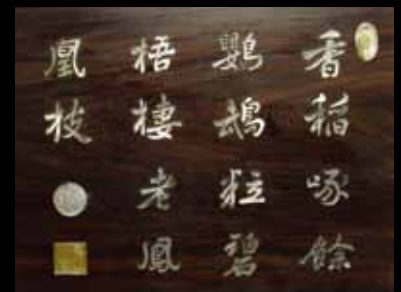 香稻啄餘
鸚鵡粒碧
梧棲老鳳
凰枝